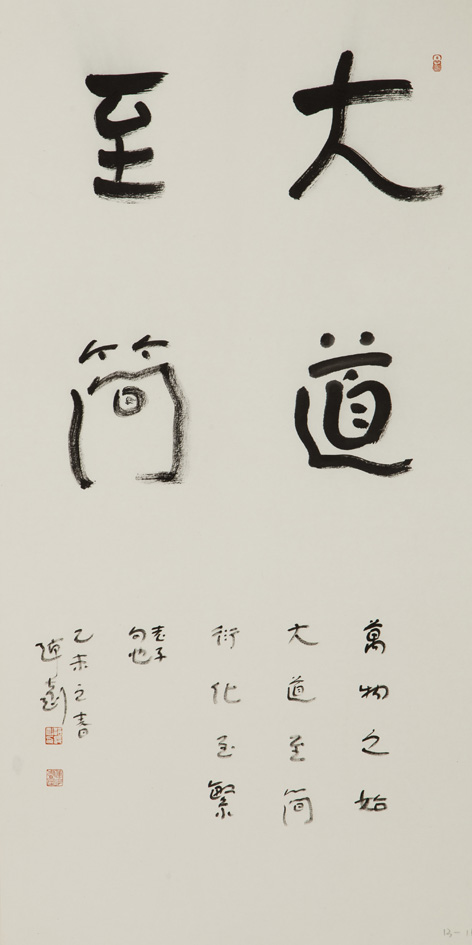 大道
至簡
萬物之始
大道至简
衍化至繁
老子
句也
乙未之春